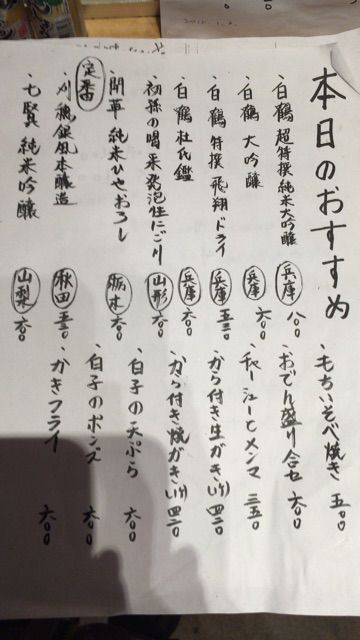 本日のおすすめ
、白鶴 超特撰純米大吟醸 兵庫 八〇〇
、白鶴 大吟醸 兵庫 六〇〇
、白鶴 特撰 飛翔ドライ 兵庫 五三〇
、白鶴 杜氏鑑 兵庫 六〇〇
、初孫の唄 米発泡性にごり 山形 六〇〇
開華 純米ひやおろし 栃木 六〇〇
定番
、刈穂銀風本醸造 秋田 五三〇
、七賢 純米吟醸 山梨 六〇〇
、もちいそべ焼き 五〇〇
、おでん盛り合せ 六〇〇
、チャーシューとメンマ 三五〇
、から付き生がき(1ケ) 四二〇
、から付き焼がき(1ケ) 四二〇
、白子の天ぷら 六〇〇
、白子のポンズ 六〇〇
、かきフライ 六〇〇